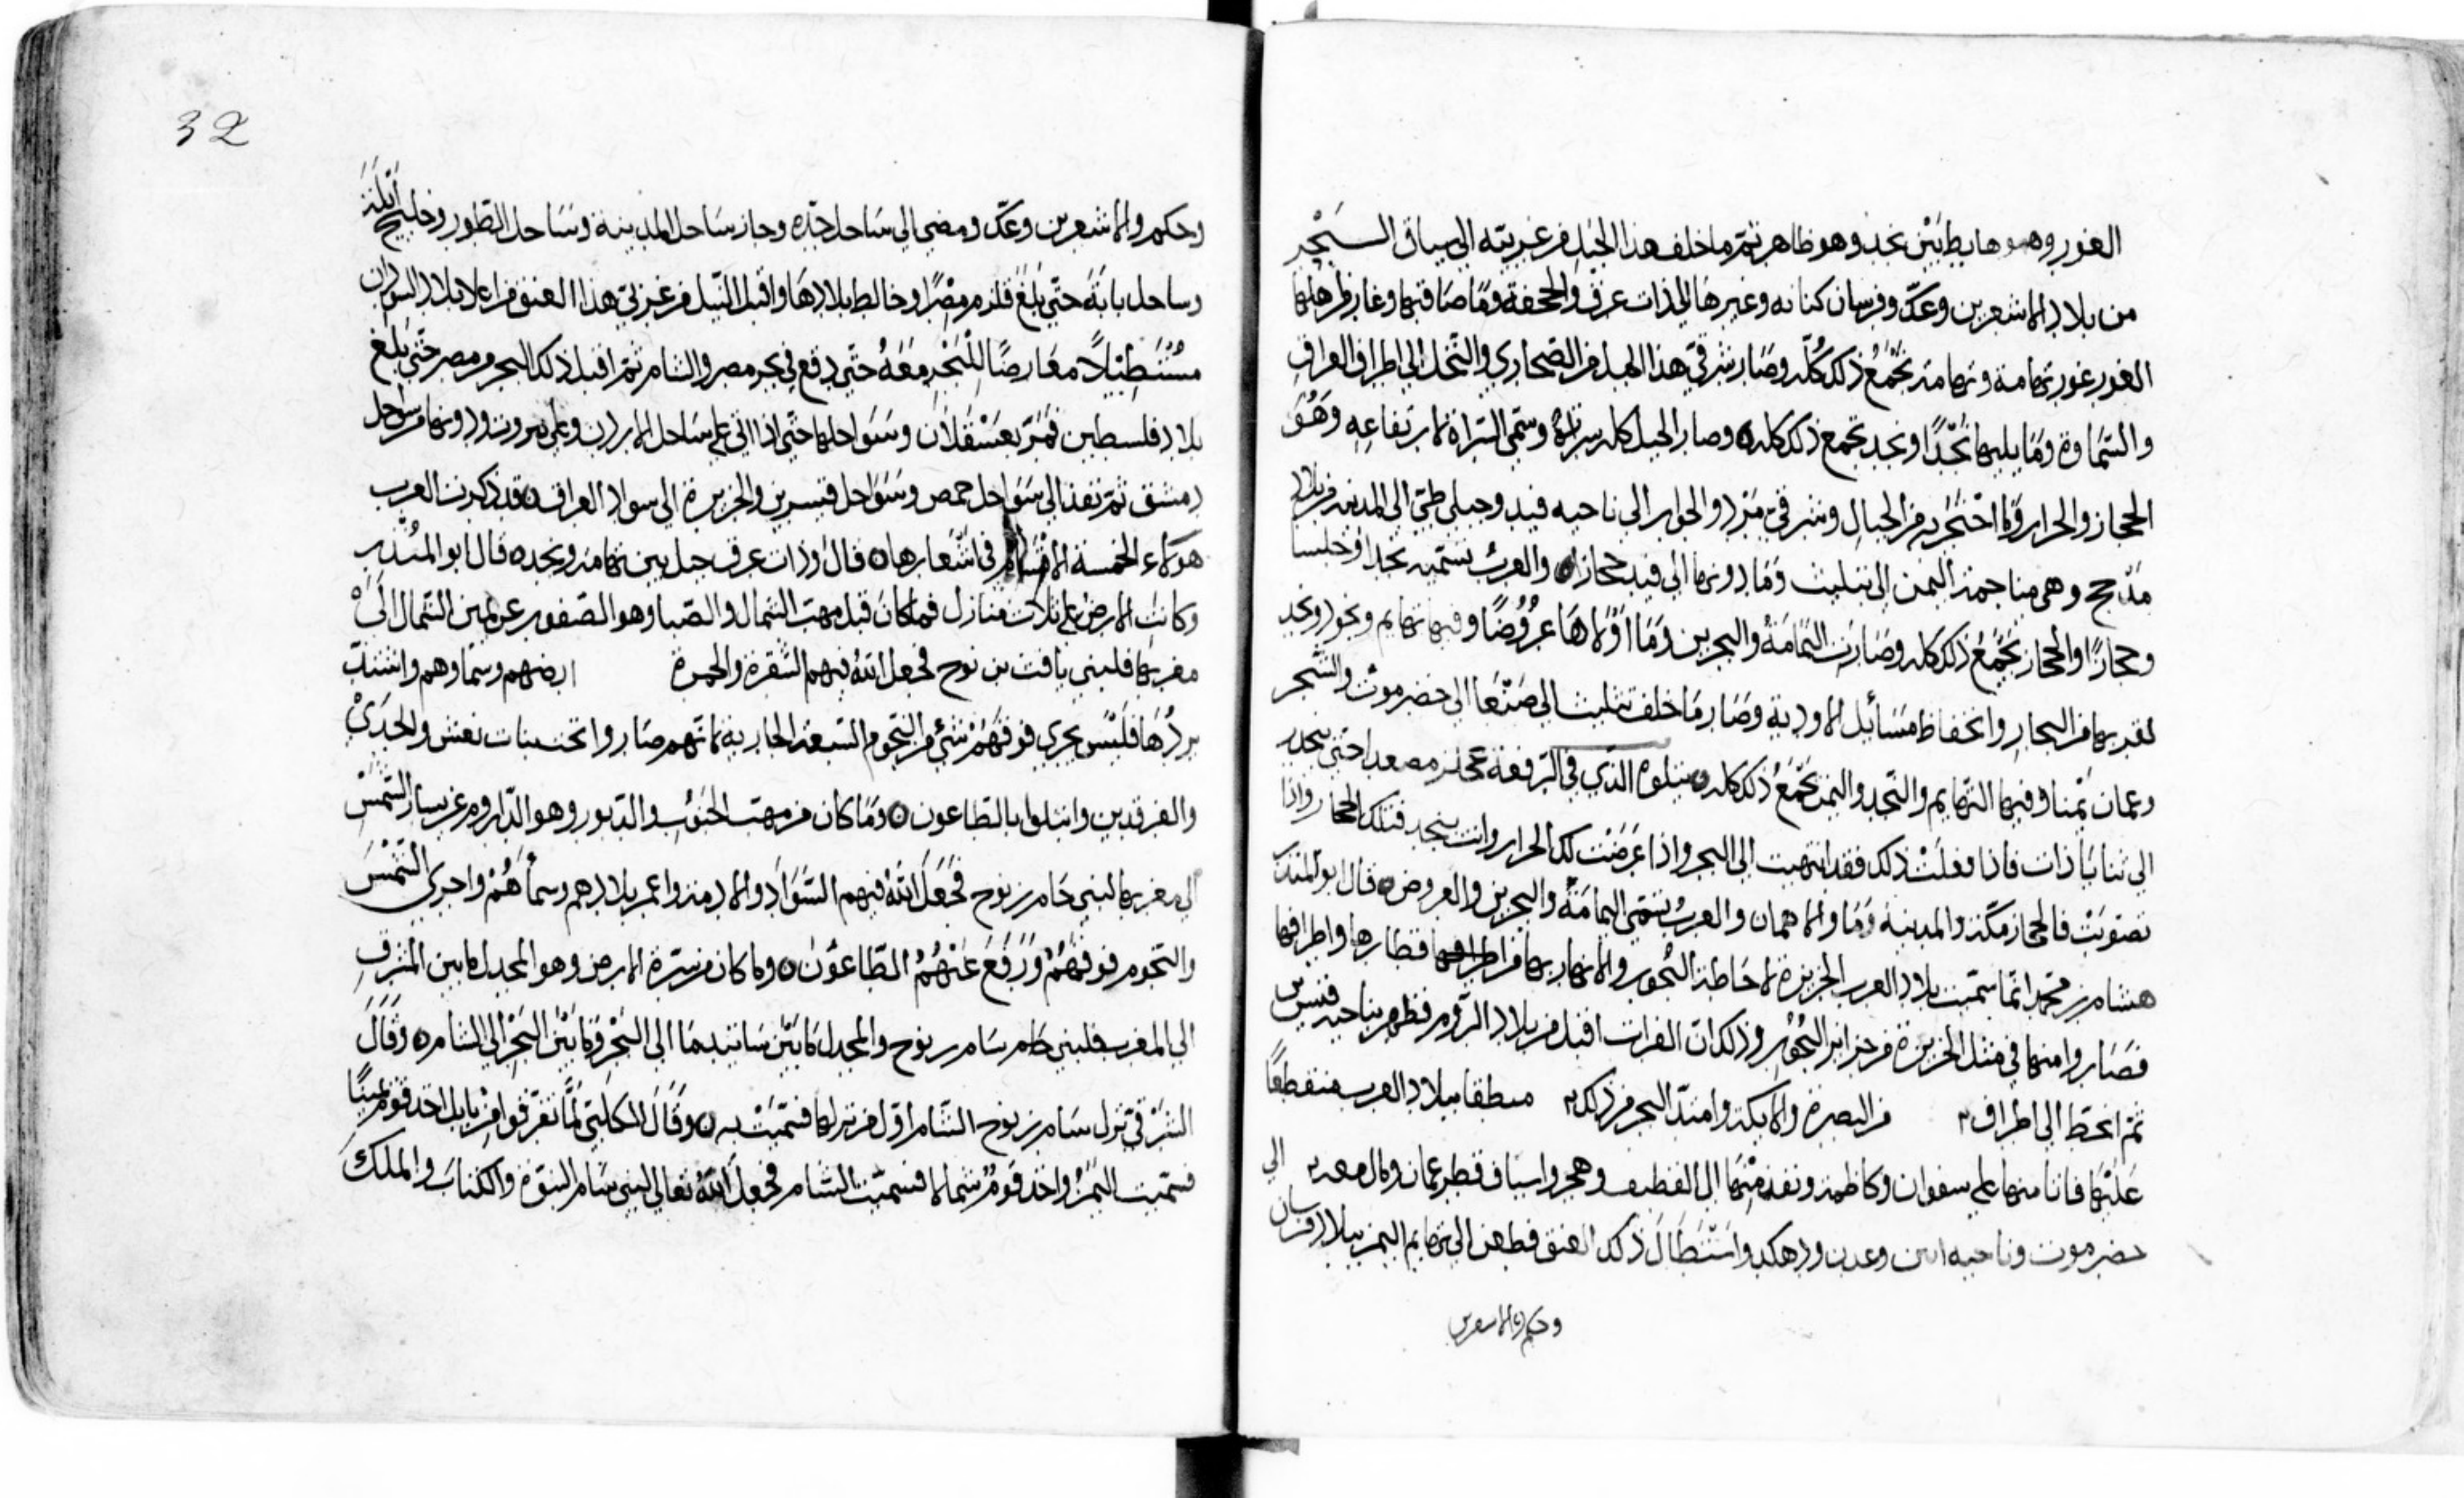 الغور وهو هابط بين نجد وهو ظاهر ثم ما خلف هذا الجبل من غربيته الى سياف البحر
من بلاد الاشعرين وعكّ وفرسان كنانه وغيرها الى ذات عرق والجحفة وما صاقبها وغار من ارضها
الغور غور تهامة وتهامة تجمع ذلك كلّه وصار شرقيّ هذا الجبل من الصحاري والنخل الى اطراف العراق
والسماوة وما يليها نجدًا ونجد تجمع ذلك كله وصار الجبل كله سراته وسمّي السراة لارتفاعه وهو
الحجاز والحرار وما احتجز به من الجبال وشرقيّ من الجواير الى ناحيه فيد وجبلي طيّ الى المدينه من بلاد
مذحج وهي منا جهة اليمن الى تثليث وما دونها الى فيد حجازا والعرب تسمّيه نجدا وجلسا
وحجازًا والحجاز يجمع ذلك كله وصارت اليمامة والبحرين وما والاها عروضًا وفيها تهايم ونجود ونجد
لقربها من البحار وانخفاظ مسائل الاودية وصار ما خلف تثليث الى صنعا الى حضرموت والشحر
وعمان يمنا وفيها التهايم والنجد واليمن تجمع ذلك كله يتلوه الذي في الرفعة مصعدا حتى ينحدر
الى ثنايا ذات فاذا فعلت ذلك فقد انتهيت الى البحر واذا عرضت لك الحرار وانت بنجد فتلك الحجاز واذا
تصوبت فالحجاز مكة والمدينة وما والاهما والعرب تسمّي اليمامة والبحرين والعروض قال ابو المنذر
هشام بن محمد انما سميت بلاد العرب الجزيرة لاحاطة البحور والانهار بها من اطرافها قطارها واطرافها
فصاروا منها في مثل الجزيرة من جزاير البحور وذلك ان الفرات اقبل من بلاد الروم فظهر بناحيه قنسرين
ثم انحط الى اطراف من البصرة والابكة وامتدّ البحر من ذلك مطقا ببلاد العرب منقطعًا
عليها فانا منها على سفوان وكاظمة ونفذ منها الى القطيف وهجر واسياف قطر عمان ومال معه الى
حضرموت وناحيه ابين وعدن ودهلك واستطال ذلك العنق فطعن الى تهايم اليمن ببلاد فرسان
وحكم والاشعرين
32
وحكم والاشعرين وعكّ ومضى الى ساحل جدّه وحاز ساحل المدينة وساحل الطور وخليج ايلة
وساحل بابة حتى بلغ قلزم مصرًا وخالط بلادها واقبل النيل من غربيّ هذا العنق من اعلا بلاد السودان
مستطيلًا معارضًا للبحر معه حتى دفع في بحر مصر والشام ثم اقبل ذلك البحر من مصر حتى بلغ
بلاد فلسطين فمرّ بعسقلان وسواحلها حتى اذا اتى على ساحل الاردن وعلى بيروت ودونها من سواحل
دمشق ثم نفذ الى سواحل حمص وسواحل قنسرين والجزيرة الى سواد العراق وقد ذكرت العرب
هولاء الخمسة الاقسام في اشعارها قال وذات عرق جبل بين تهامة ونجد قال ابو المنذر
وكانت الارض على ثلاث منازل فما كان قبل مهبّ الشمال والصبا وهو الصفور عن يمين الشمال الى
مغربها فلبني يافث بن نوح فجعل الله فيهم الشقرة والحمرة ارضهم وسماوهم واشتدّ
بردها فليس يجري فوقهم شيء من النجوم السبعة الجارية لانهم صاروا تحت بنات نعش والجدي
والفرقدين وابتلوا بالطاعون وما كان من مهب الجنوب والدبور وهو الداروم عن يسار الشمس
الى مغربها لبني حام بن نوح فجعل الله فيهم السواد والادمة واعمر بلادهم وسماهم واجرى الشمس
والنجوم فوقهم ورفع عنهم الطاعون وما كان من سترة الارض وهو المجدل ما بين المشرق
الى المغرب فلبني سام بن نوح والمجدل ما بين ساتيدما الى البحر وما بين البحر الى الشام وقال
الشرقي نزل سام بن نوح الشام اول من نزلها فسميت به وقال الكلبي لما تفرقوا من بابل اخذ قوم يمينًا
فسميت اليمن واخذ قوم شمالا فسميت الشام فجعل الله تعالى لبني سام النبوّة والكتاب والملك